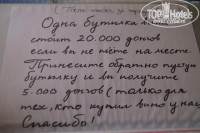 TopHotels
Одна бутылка
стоит 20.000 донгов
если вы не пьёте на месте.
Принесите обратно пустую
бутылку и вы получите
5.000 донгов (только для
тех, кто купил вино у нас)
Спасибо!